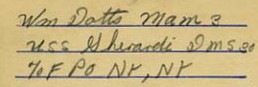 Wm Dotts Mam 3
USS Gherardi DMS 30
% F PO NY, NY